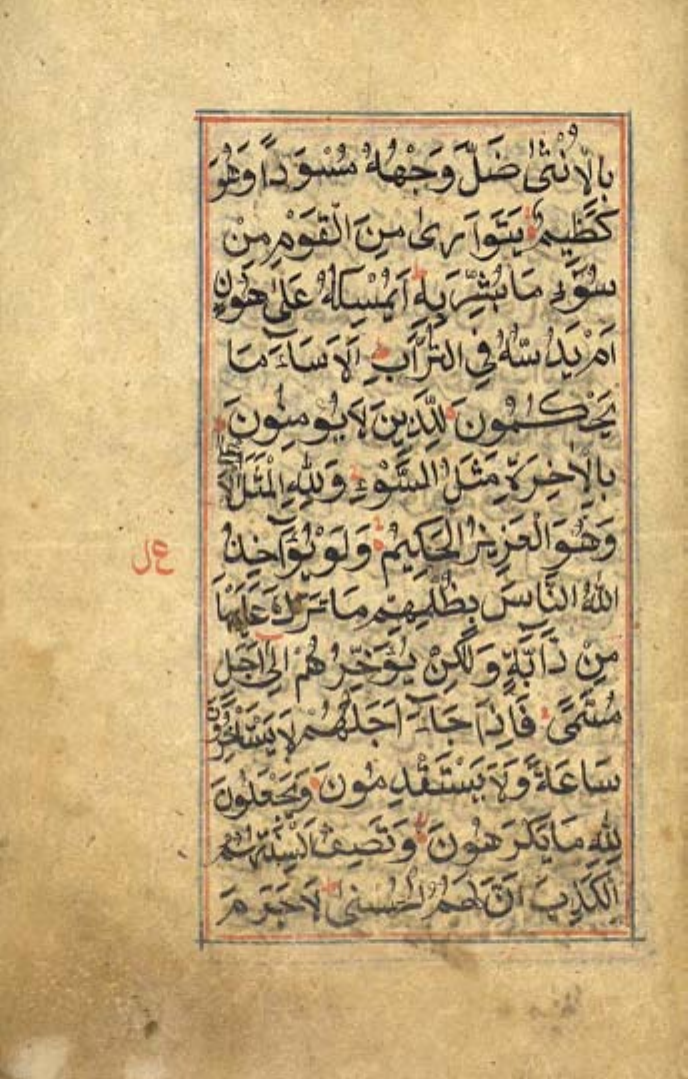 بِالْاُنْثٰى ضَلَّ وَجْهُهٗ مُسْوَدًّا وَهُوَ
كَظِيْمٌ يَتَوَارٰى مِنَ الْقَوْمِ مِنْ
سُوْٓءِ مَا بُشِّرَ بِهٖ اَيُمْسِكُهٗ عَلٰى هُوْنٍ
اَمْ يَدُسُّهٗ فِي التُّرَابِ اَلَا سَآءَ مَا
يَحْكُمُوْنَ لِلَّذِيْنَ لَا يُؤْمِنُوْنَ
بِالْاٰخِرَةِ مَثَلُ السَّوْءِ وَلِلّٰهِ الْمَثَلُ الْاَعْلٰى
وَهُوَ الْعَزِيْزُ الْحَكِيْمُ وَلَوْ يُؤَاخِذُ
اللّٰهُ النَّاسَ بِظُلْمِهِمْ مَا تَرَكَ عَلَيْهَا
مِنْ دَآبَّةٍ وَلٰكِنْ يُؤَخِّرُهُمْ اِلٰى اَجَلٍ
مُسَمًّى فَاِذَا جَآءَ اَجَلُهُمْ لَا يَسْتَأْخِرُوْنَ
سَاعَةً وَلَا يَسْتَقْدِمُوْنَ وَيَجْعَلُوْنَ
لِلّٰهِ مَا يَكْرَهُوْنَ وَتَصِفُ اَلْسِنَتُهُمُ
الْكَذِبَ اَنَّ لَهُمُ الْحُسْنٰى لَا جَرَمَ